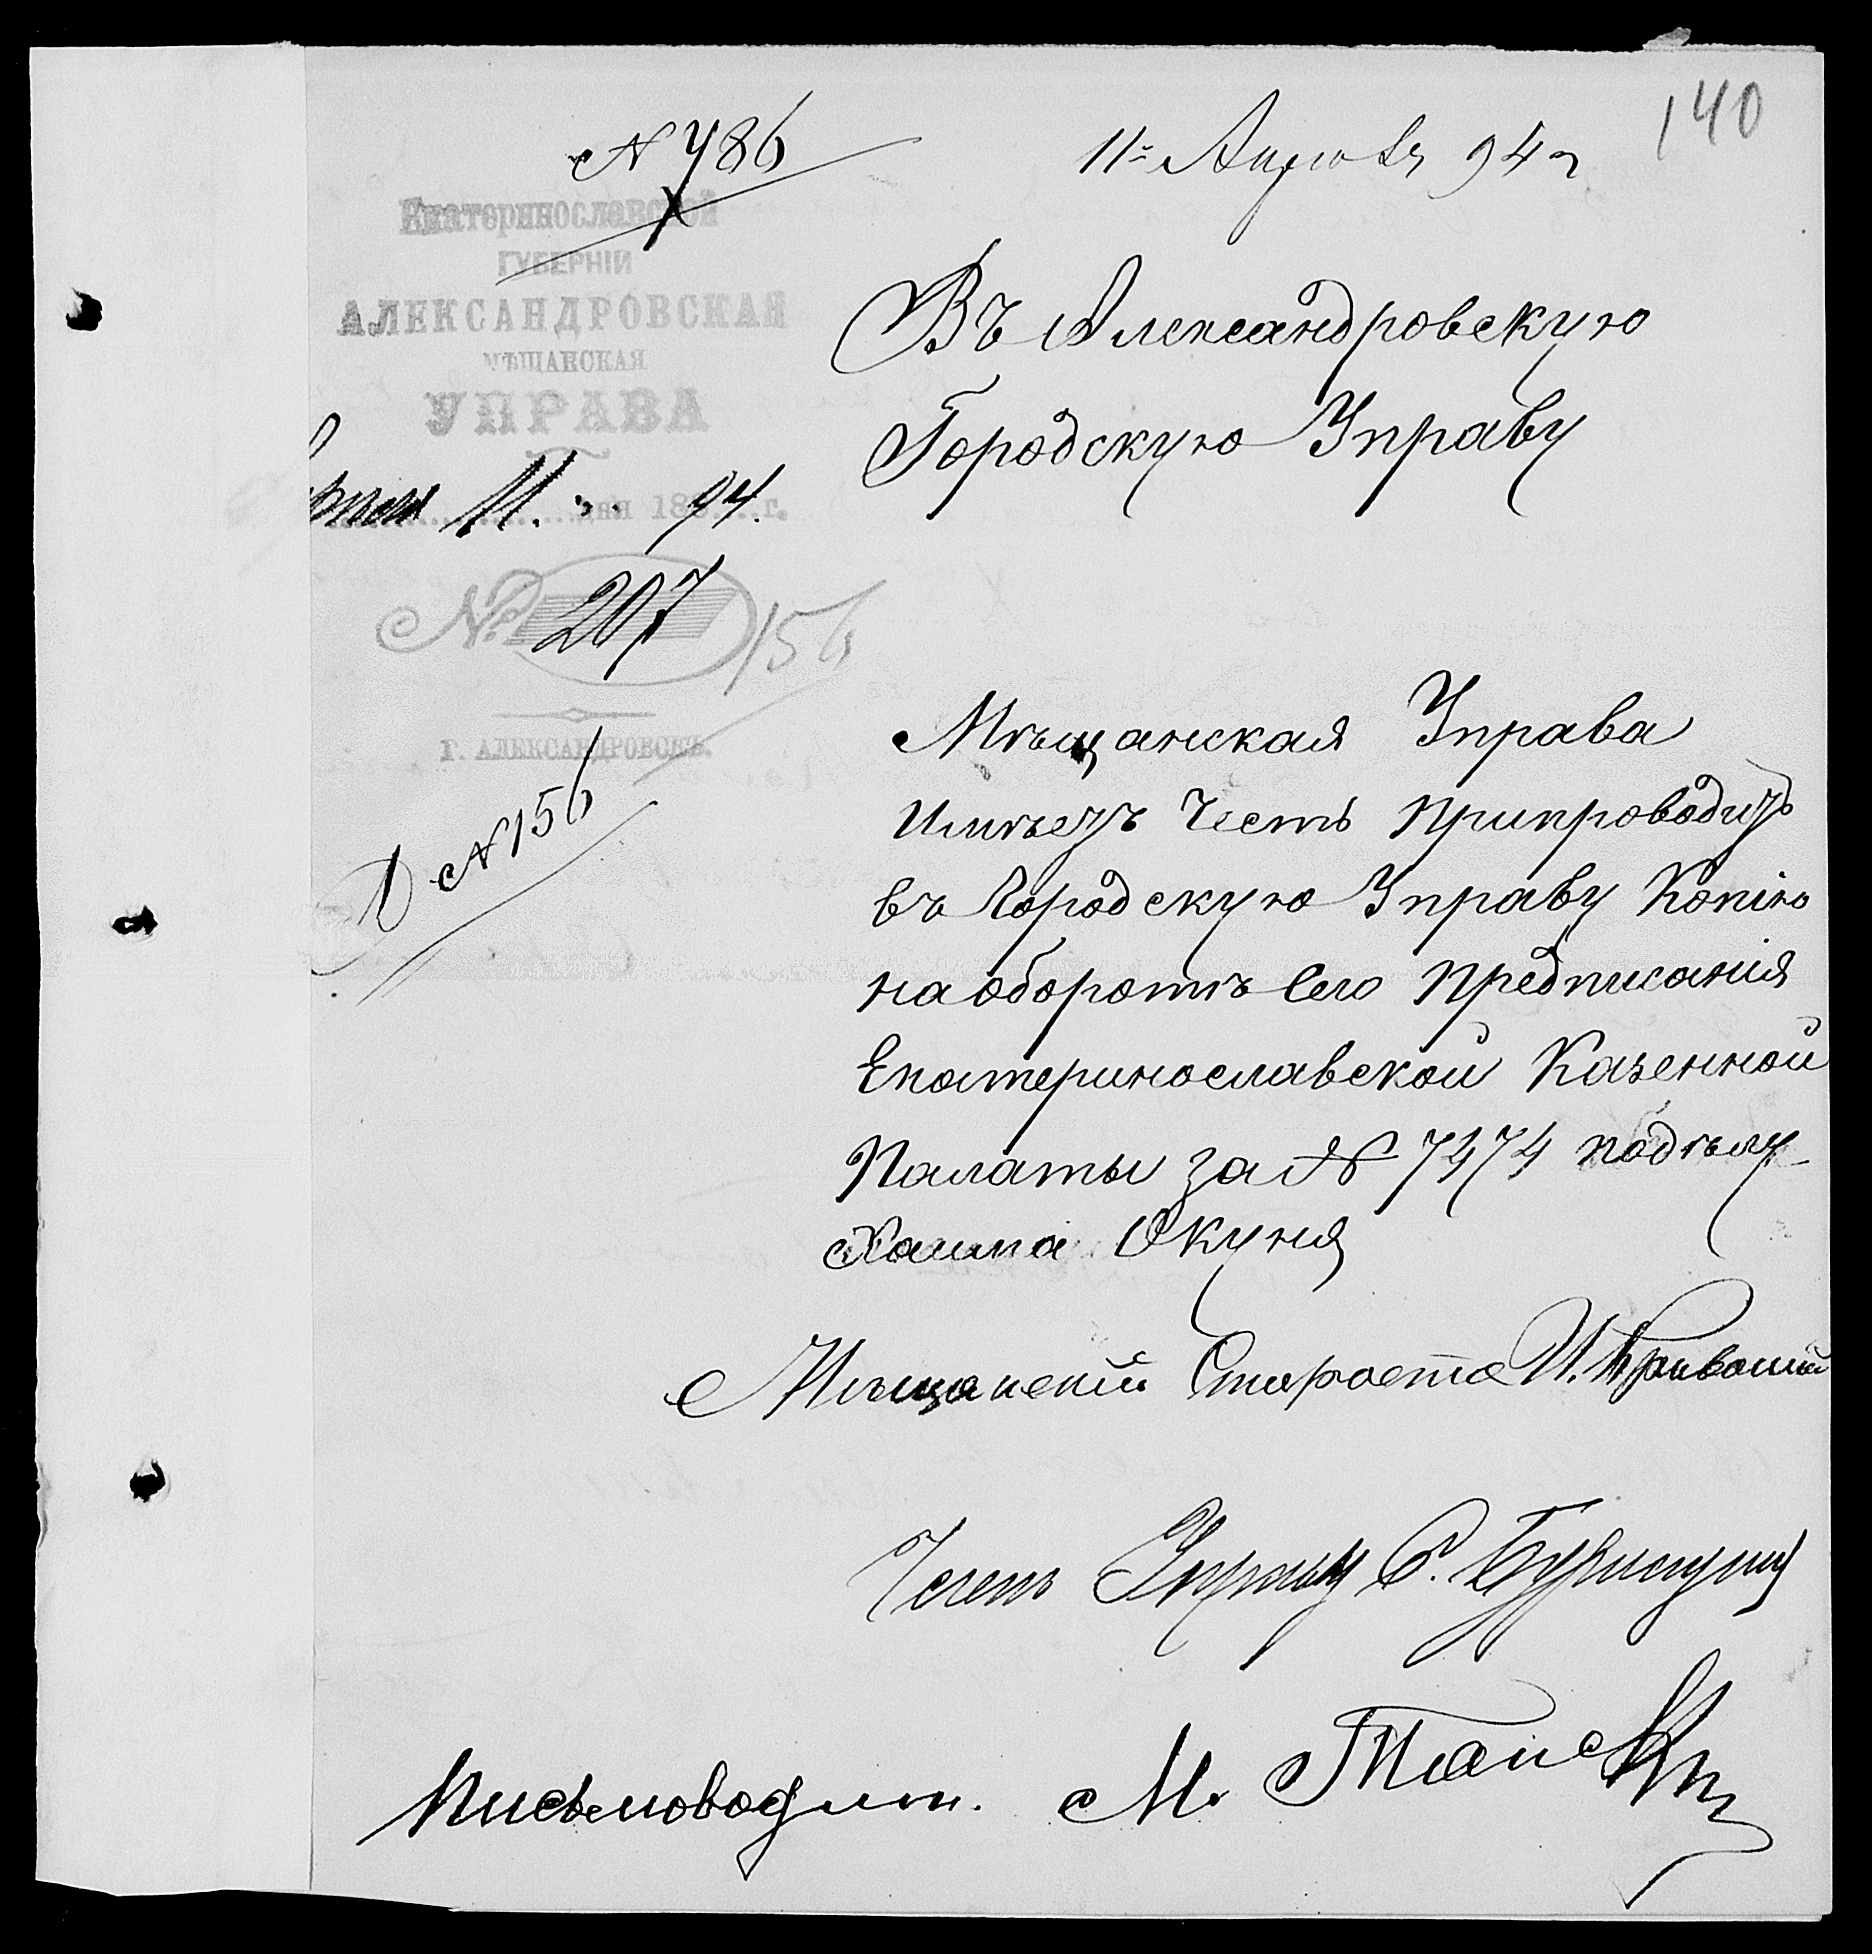 140
№ 486
11го Апреля 94 г
Екатеринославской
ГУБЕРНІИ
АЛЕКСАНДРОВСКАЯ
МѢЩАНСКАЯ
УПРАВА
11. дня 1894. г.
№ 207
156
Г. АЛЕКСАНДРОВСКЪ.
Д № 156
Въ Александровскую
Городскую Управу
Мѣщанская Управа
имѣетъ честь припроводить
въ Городскую Управу Копію
на оборотѣ сего предписанія
Екатеринославской Казенной
Палаты за № 7474 по дѣлу
Хаима Окуня
Мѣщанскій Староста И.
Членъ Управы С.
Письмоводит. М.